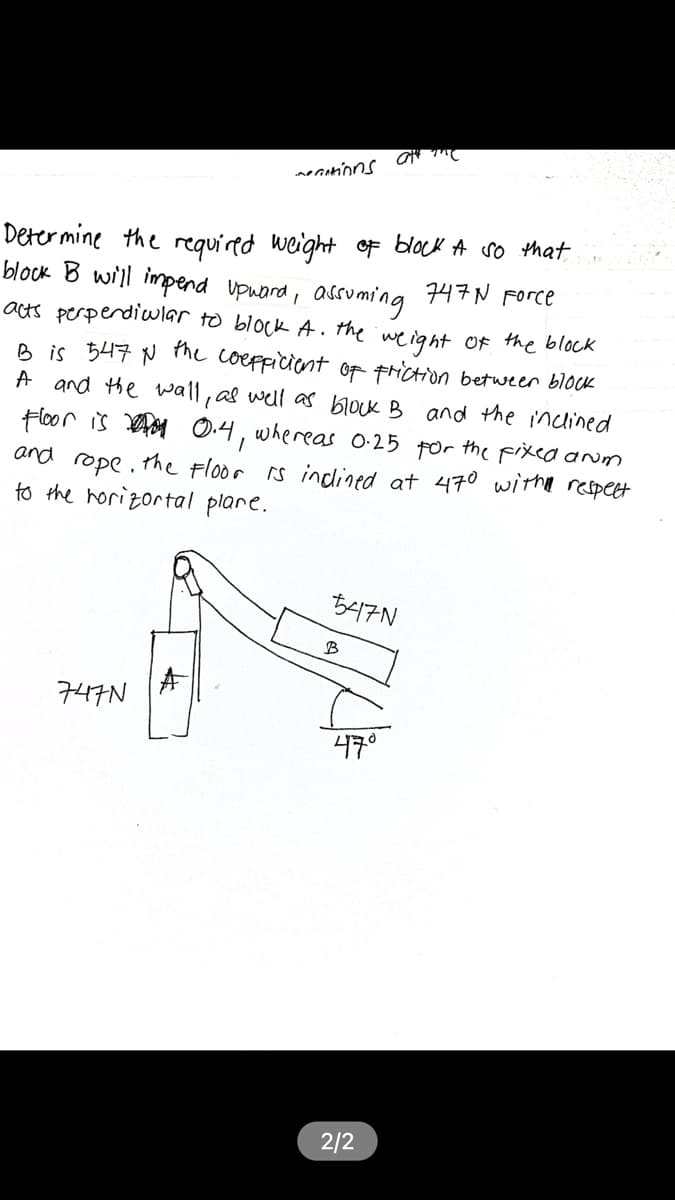 Determine the required weight of block A so that
block B will impend upward, assuming 747N Force
acts perpendicular to block A. the weight of the block
B is 547 N the coefficient of friction between block
A and the wall, as well as block B and the inclined
floor is 0.4, whereas 0.25 for the fixed drum
and rope. the floor is inclined at 47° with respect
to the horizontal plane.
547N
B
A
747N
47°
2/2